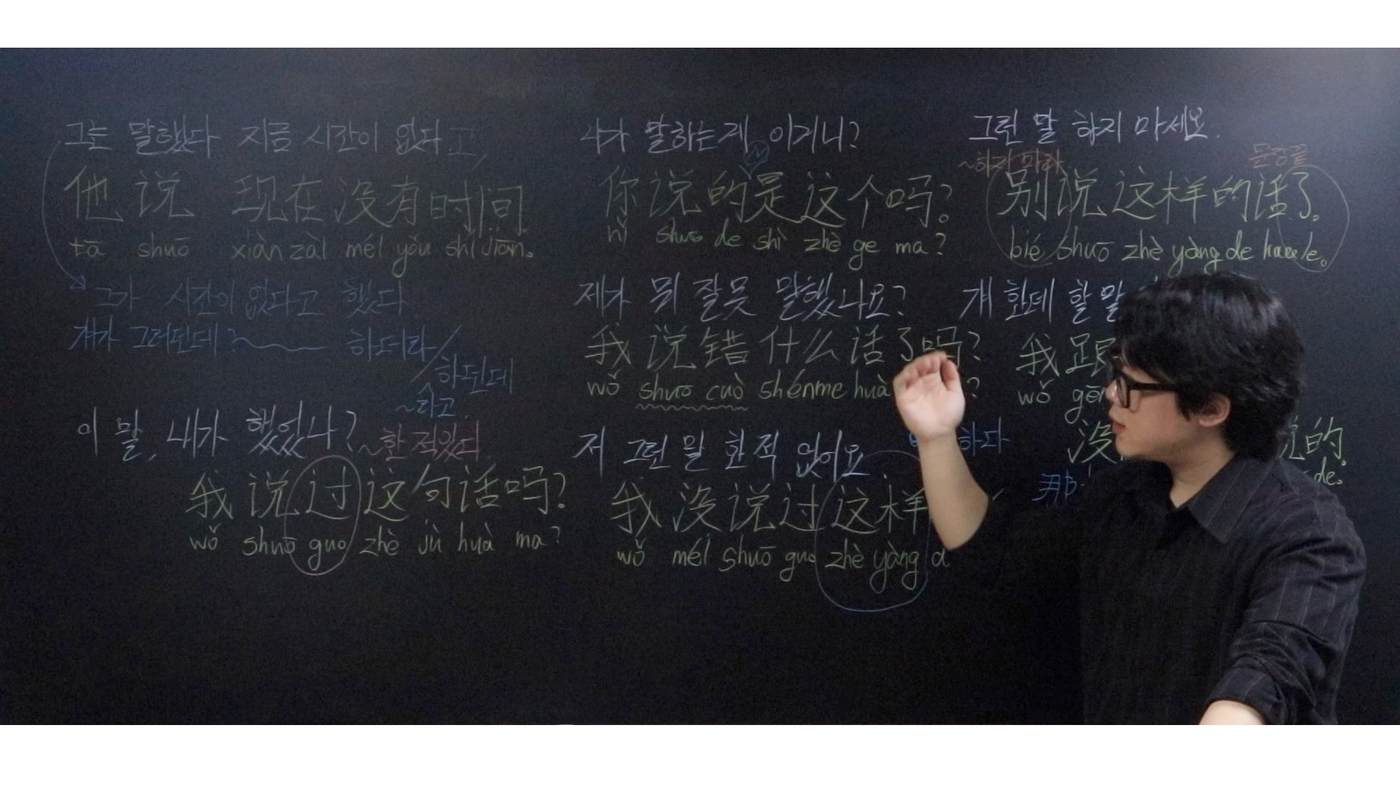 그는 말했다 지금 시간이 없다고,
他 说 现在没有时间.
tā shuō xiàn zài méi yǒu shí jiān.
그가 시간이 없다고 했다
걔가 그러던데? 하더라/하던데
~라고.
이 말, 내가 했었나? ~한 적있다.
我说过这句话吗?
wǒ shuō guo zhè jù huà ma?
니가 말하는게 이거니?
你说的是这个吗?
nǐ shuō de shì zhè ge ma?
제가 뭐 잘못 말했나요?
我说错什么话了吗?
wǒ shuō cuò shénme huà ?
저 그런 말 한적 없어요.
我没说过这样
wǒ méi shuō guo zhè yàng d
그런 말 하지 마세요.
~하지 마라 문장끝
别说这样的话了。
bié shuō zhè yàng de huà le.
걔 한테 할 말
我跟
wǒ gēn
하다
没 说的
de.